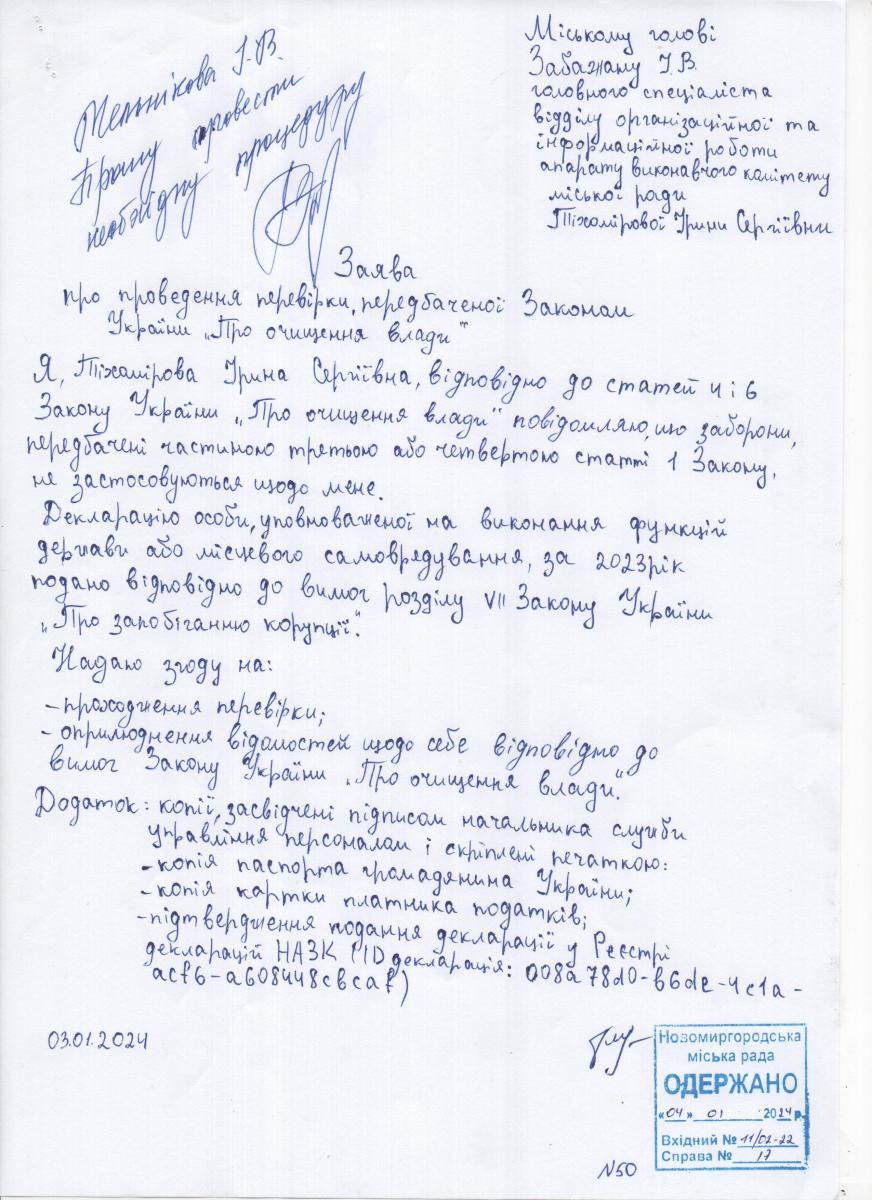 Мельнікова І.В.
Прошу провести
необхідну процедуру
Міському голові
Забажану І.В.
головного спеціаліста
відділу організаційної та
інформаційної роботи
апарату виконавчого комітету
міської ради
Тіхомірової Ірини Сергіївни
Заява
про проведення перевірки, передбаченої Законом
України „Про очищення влади"
Я, Тіхомірова Ірина Сергіївна, відповідно до статей 4 і 6
Закону України „Про очищення влади" повідомляю, що заборони,
передбачені частиною третьою або четвертою статті 1 Закону,
не застосовуються щодо мене.
Декларацію особи, уповноваженої на виконання функцій
держави або місцевого самоврядування, за 2023рік
подано відповідно до вимог розділу VII Закону України
„Про запобіганню корупції".
Надаю згоду на:
- проходження перевірки;
- оприлюднення відомостей щодо себе відповідно до
вимог Закону України „Про очищення влади".
Додаток: копії, засвідчені підписом начальника служби
управління персоналом і скріплені печаткою:
- копія паспорта громадянина України;
- копія картки платника податків;
- підтвердження подання декларації у Реєстрі
декларацій НАЗК (ID декларація: 008a78d0-b6de-4c1a-
acf6-a608448cbcaf)
03.01.2024
Новомиргородська
міська рада
ОДЕРЖАНО
«04» 01 2024 р.
Вхідний № 11/02-22
Справа № 17
N50